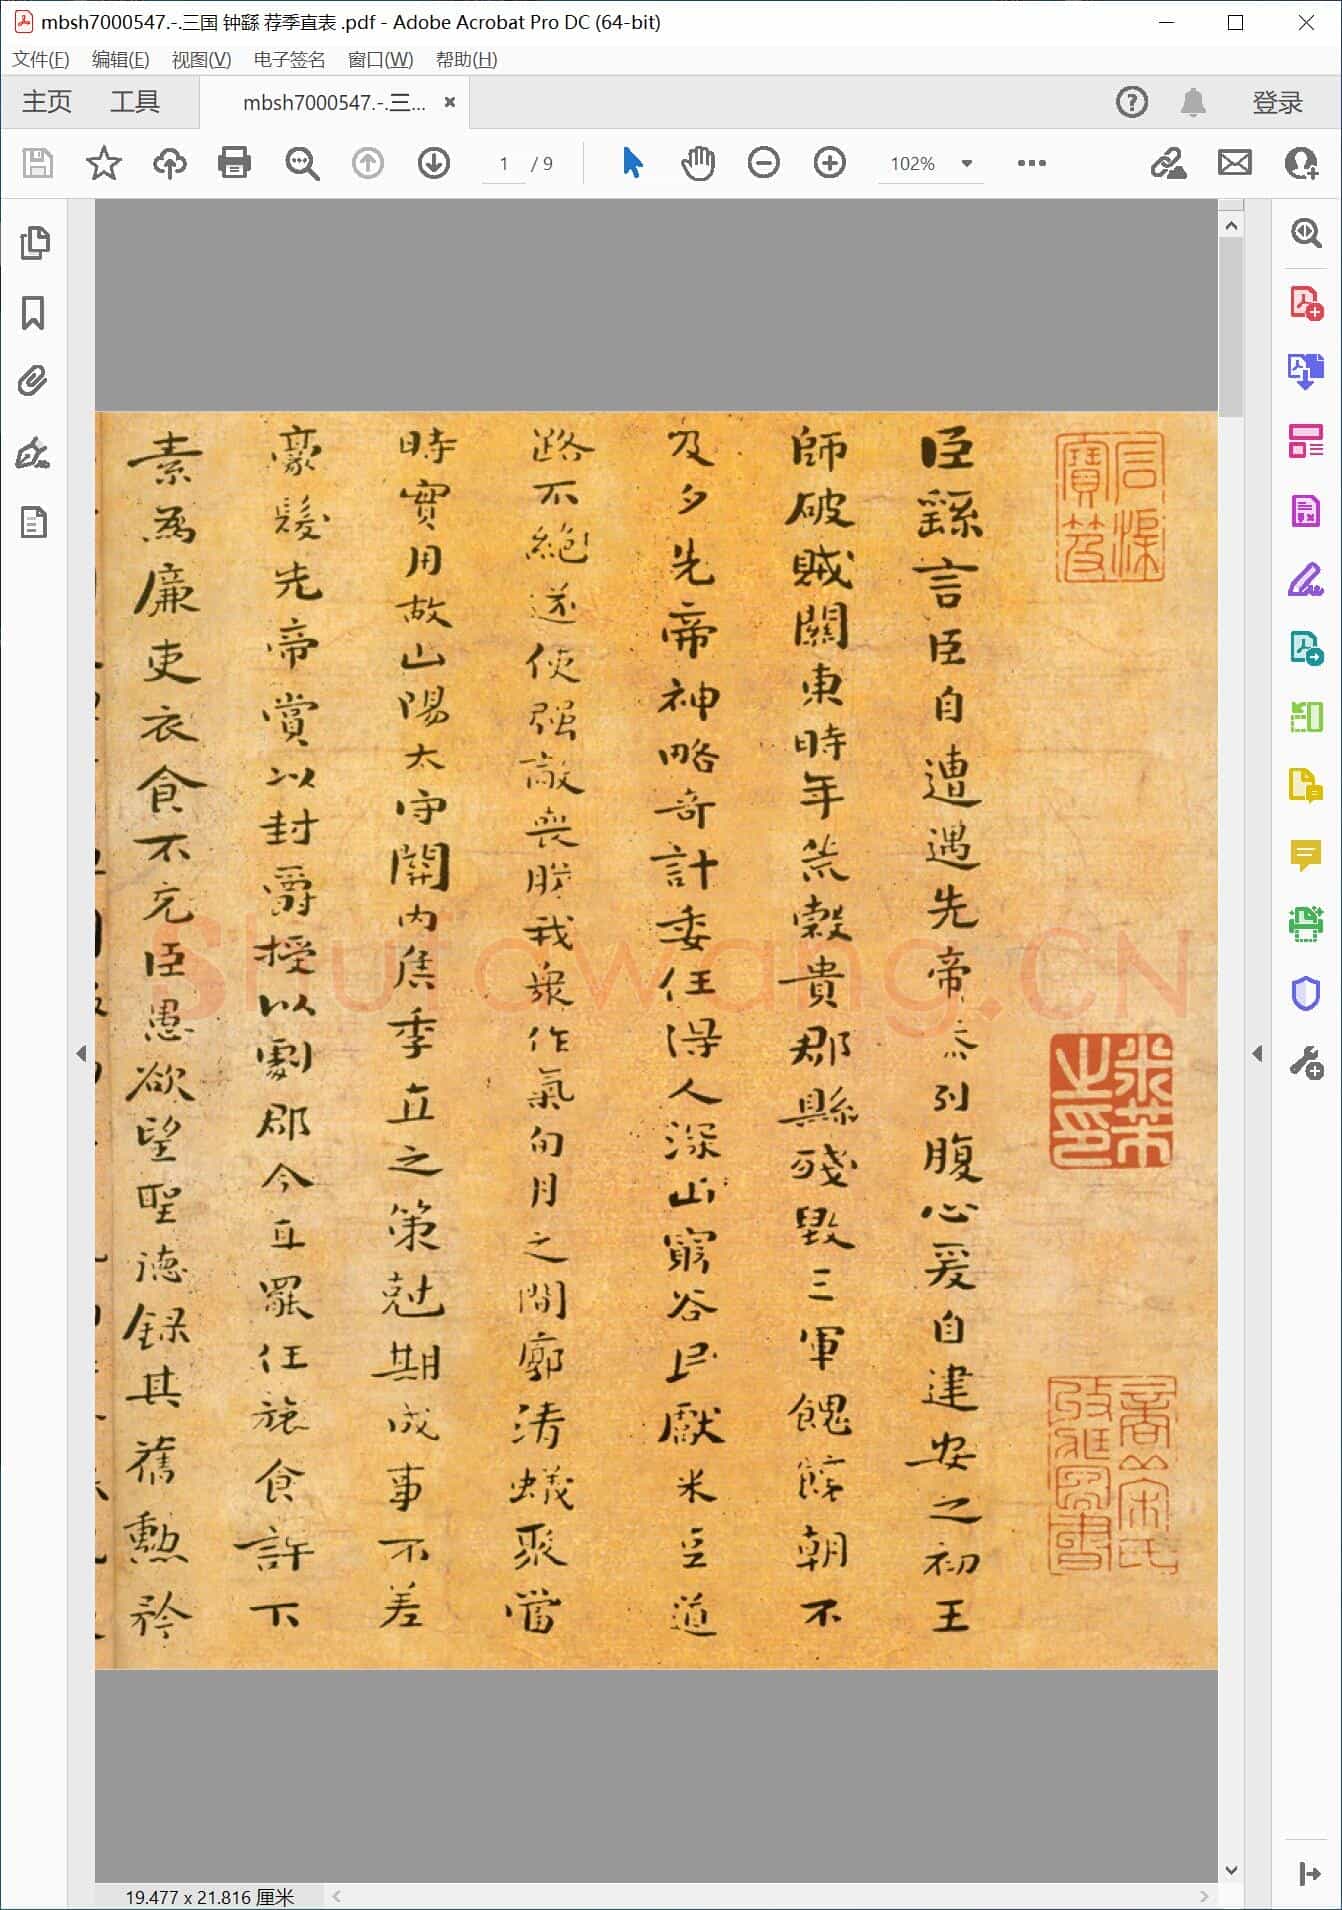 mbsh7000547.-.三国 钟繇 荐季直表 .pdf - Adobe Acrobat Pro DC (64-bit)
文件(F) 编辑(E) 视图(V) 电子签名 窗口(W) 帮助(H)
主页 工具 mbsh7000547.-.三... × 登录
1 / 9 102%
臣繇言臣自遭遇先帝忝列腹心爰自建安之初王
師破賊關東時年荒穀貴郡縣殘毀三軍餽饟朝不
及夕先帝神略奇計委任得人深山窮谷民獻米豆道
路不絕遂使强敵喪膽我衆作氣旬月之間廓清蟻聚當
時實用故山陽太守關內侯季直之策尅期成事不差
豪髮先帝賞以封爵授以劇郡今直罷任旅食許下
素為廉吏衣食不充臣愚欲望聖德錄其舊勳矜
Shufawang.CN
19.477 x 21.816 厘米